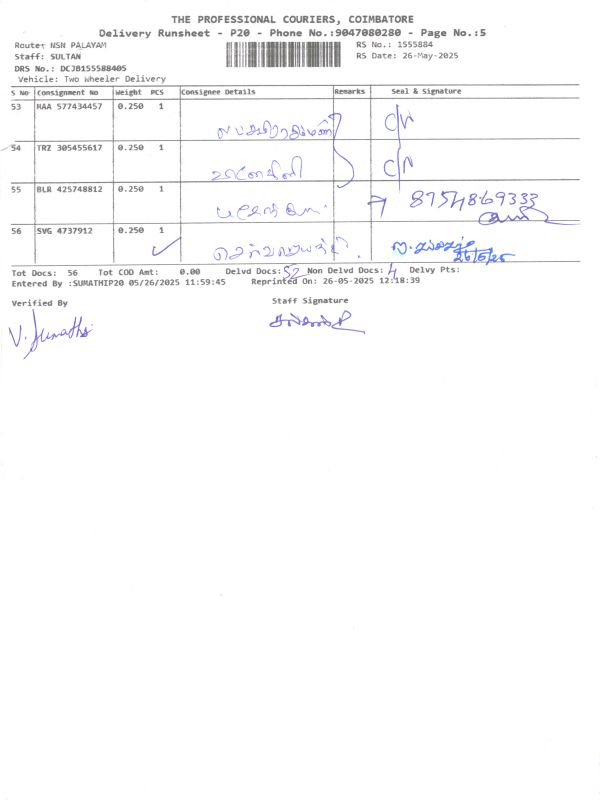 THE PROFESSIONAL COURIERS, COIMBATORE
Delivery Runsheet - P20 - Phone No.:9047080280 - Page No.:5
Route: NSN PALAYAM RS No.: 1555884
Staff: SULTAN RS Date: 26-May-2025
DRS No.: DCJB155588405
Vehicle: Two Wheeler Delivery
S No Consignment No Weight PCS Consignee Details Remarks Seal & Signature
53 MAA 577434457 0.250 1
54 TRZ 305455617 0.250 1
55 BLR 425748812 0.250 1 8754869333
56 SVG 4737912 0.250 1
26/5/25
Tot Docs: 56 Tot COD Amt: 0.00 Delvd Docs: 52 Non Delvd Docs: 4 Delvy Pts:
Entered By :SUMATHIP20 05/26/2025 11:59:45 Reprinted On: 26-05-2025 12:18:39
Verified By Staff Signature
V. Sumathi